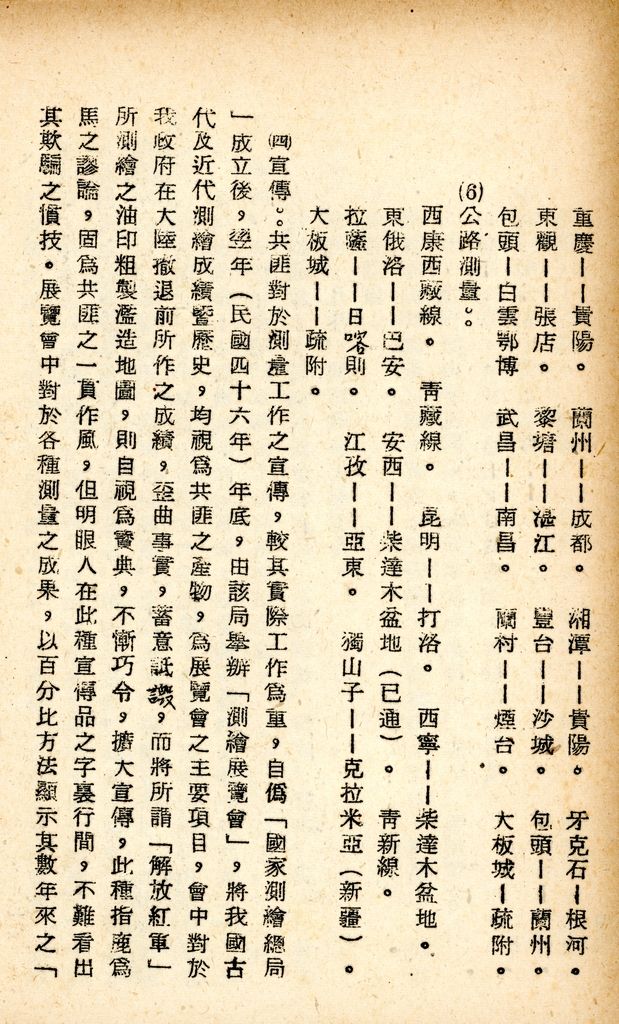 重慶——貴陽。　蘭州——成都。　湘潭——貴陽。　牙克石—根河。
東觀——張店。　黎塘——湛江。　豐台——沙城。　包頭——蘭州。
包頭—白雲鄂博　武昌——南昌。　蘭村——煙台。　大板城—疏附。
(6)公路測量。。
西康西藏線。　青藏線。　昆明——打洛。　西寧——柴達木盆地。
東俄洛——巴安。　安西——柴達木盆地（已通）。　青新線。
拉薩——日喀則。　江孜——亞東。　獨山子——克拉米亞（新疆）。
大板城——疏附。
㈣宣傳。。共匪對於測量工作之宣傳，較其實際工作爲重，自僞「國家測繪總局
」成立後，翌年（民國四十六年）年底，由該局舉辦「測繪展覽會」，將我國古
代及近代測繪成績暨歷史，均視爲共匪之產物，爲展覽會之主要項目，會中對於
我政府在大陸撤退前所作之成績，歪曲事實，蓄意詆譭，而將所謂「解放紅軍」
所測繪之油印粗製濫造地圖，則自視爲寶典，不慚巧令，擴大宣傳，此種指鹿爲
馬之謬論，固爲共匪之一貫作風，但明眼人在此種宣傳品之字裏行間，不難看出
其欺騙之慣技。展覽會中對於各種測量之成果，以百分比方法顯示其數年來之「